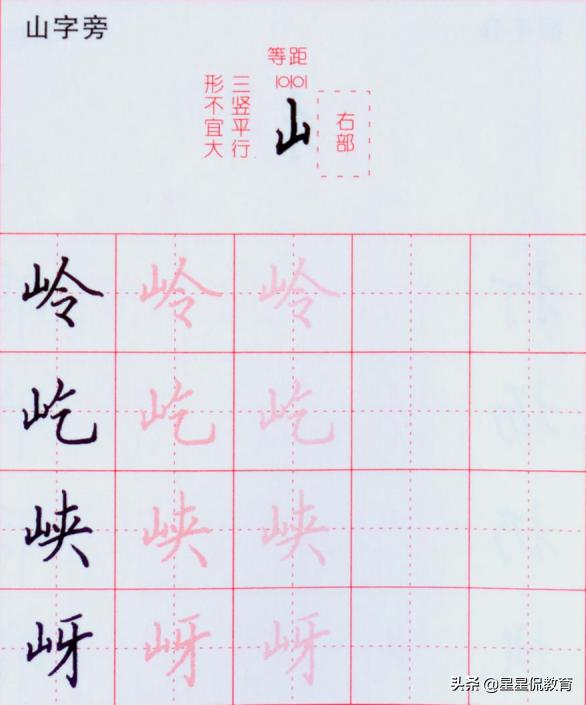 山字旁
等距
三竖平行
形不宜大
山
右部
岭 岭 岭
屹 屹 屹
峡 峡 峡
岈 岈 岈
头条 @星星侃教育